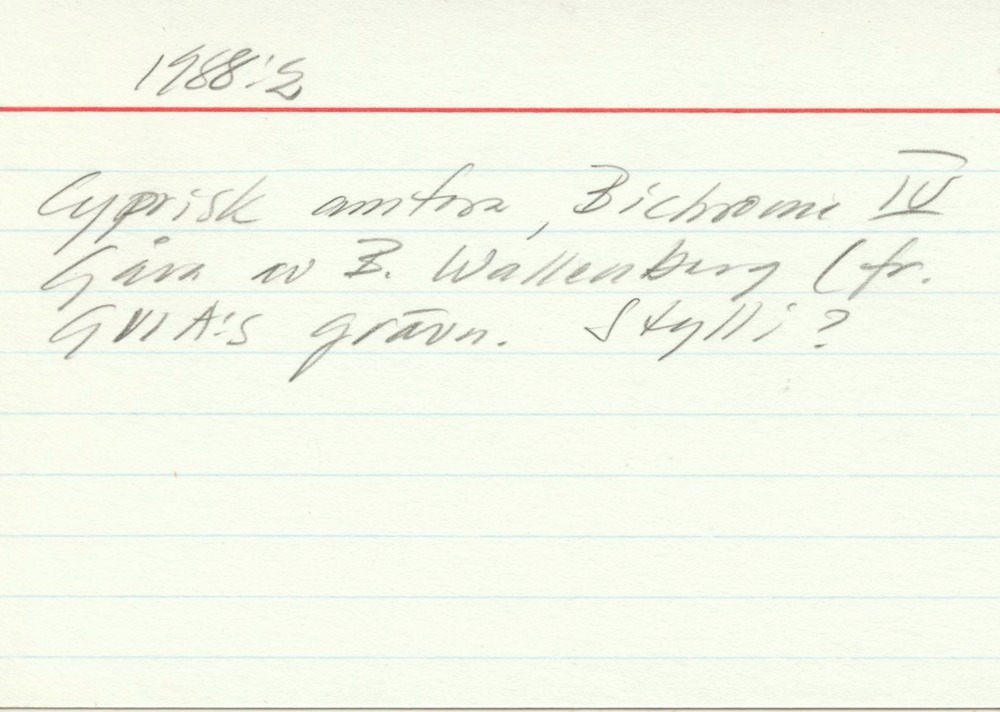 1988:2
Cyprisk amfora, Bichrome IV
Gåva av B. Wallenberg (fr.
GVIA:s grävn. Stylli?